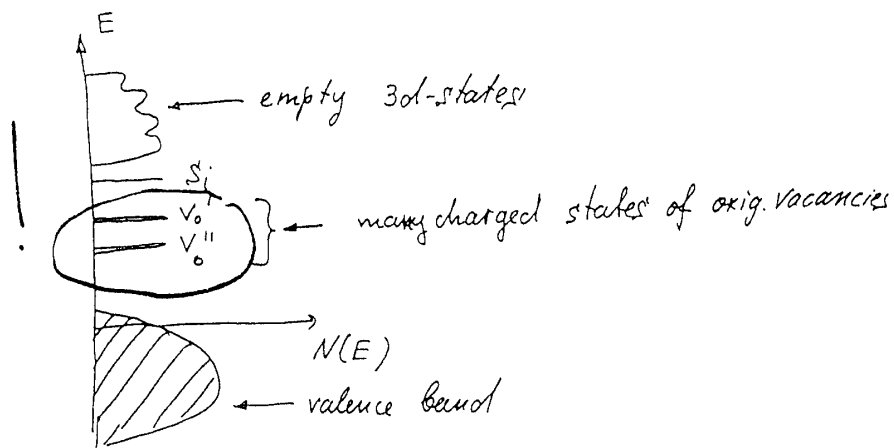 E
empty 3d-states
!
Si
Vo'
Vo"
many charged states of oxig. vacancies
N(E)
valence band